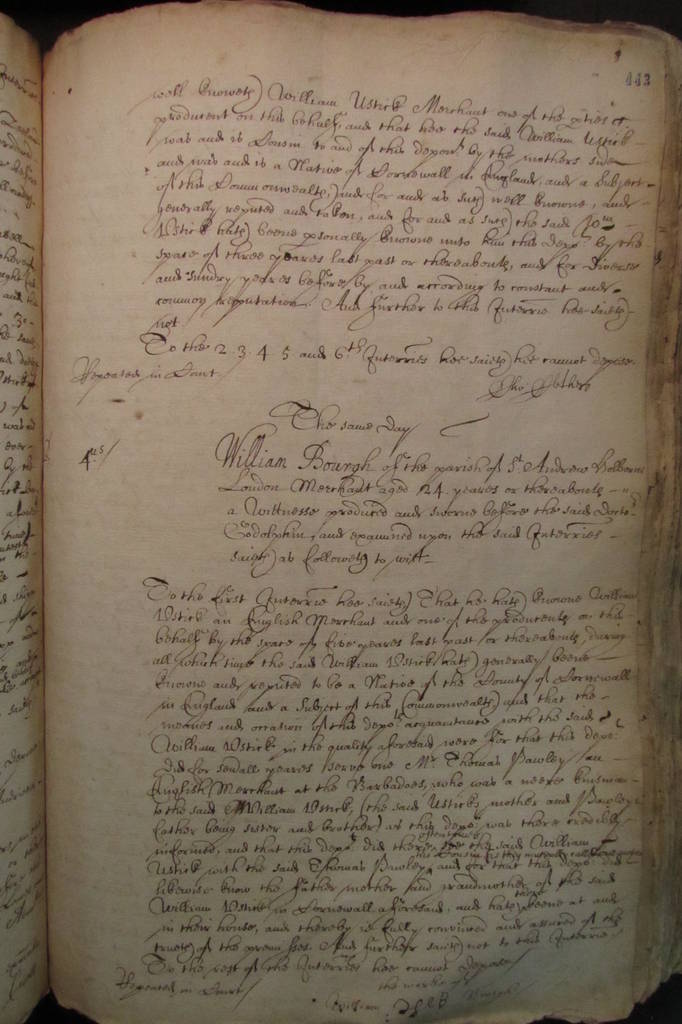 443
well knoweth) William Ustick Merchant one of the pties
producent on this behalfe, and that hee the said William Ustick
was and is Cousin to and of this depont by the mothers side
and was and is a Native of Cornewall in England, and a Subject
of this Commonwealth, and for and as such well knowne, and
generally reputed and taken, and for and as such the said Wm
Ustick hath beene psonally knowne unto him this dept by the
space of three yeares last past or thereabouts, and for diverse
and sundry yeares before by and according to constant and
common reputation. And further to this Interrie hee saieth
not.
To the 2. 3. 4. 5 and 6th Interries hee saieth hee cannot depose.
Repeated in Court.
The same day
4us/
William Bourgh of the parish of St Andrew Holborne
London Merchant aged 24 yeares or thereabouts
a Wittnesse produced and sworne before the said Doctor
Godolphin, and examined upon the said Interries
saieth as followeth to witt
To the first Interrie hee saieth That he hath knowne William
Ustick an English Merchant and one of the producents on this
behalfe by the space of five yeares last past or thereabouts, during
all which time the said William Ustick hath generally beene
knowne and reputed to be a Native of the County of Cornewall
in England and a Subject of this Commonwealth and that the
meanes and occasion of this depts acquaintance with the said
William Ustick in the quality aforesaid were for that this dept
did for sevall yeares serve one Mr Thomas Pawley an
English Merchant at the Barbadoes, who was a neere kinsman
to the said William Ustick, (the said Usticks mother and Pawleys
father being sister and brother) as this dept was there credibly
informed, and that this dept did there see the said William
Ustick with the said Thomas Pawley and for that this dept did
likewise know the father mother and grandmother of the said
William Ustick in Cornewall aforesaid, and hath beene at and
in their house, and thereby is fully convinced and assured of the
trueth of the premisses. And further saieth not to this Interrie
To the rest of the Interries hee cannot depose
Repeated in Court
the marke of
William Bourgh